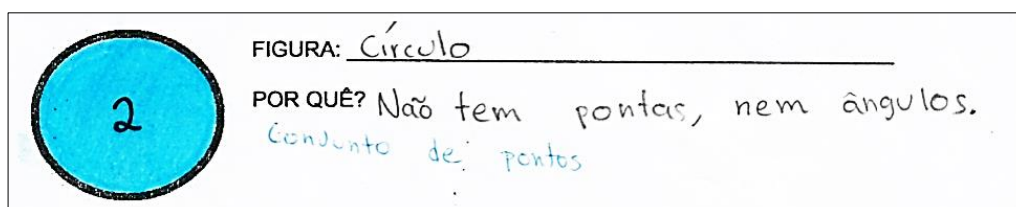 2
FIGURA: Círculo
POR QUÊ? Não tem pontas, nem ângulos.
Conjunto de pontos